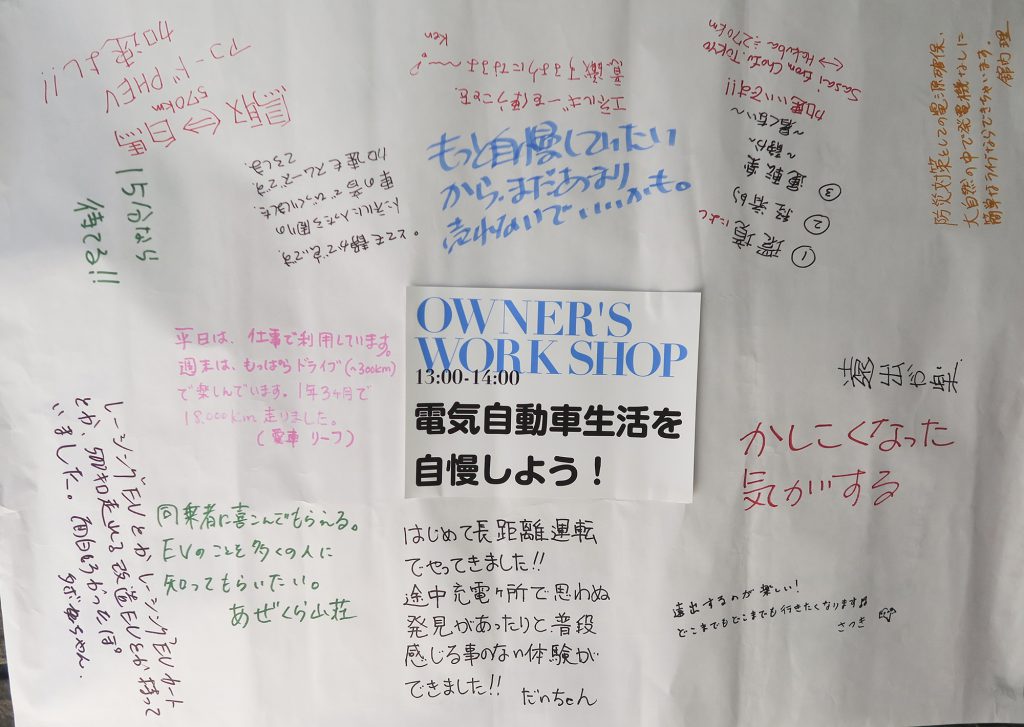 OWNER'S
WORK SHOP
13:00-14:00
電気自動車生活を
自慢しよう！
アコードPHEV
加速よし!!
鳥取⇔白馬
570km
15分なら
待てる!!
とても静かで良いです。
トンネルに入ったら周りの
車の音でびっくりしました。
加速もスムーズです。
エネルギーを使うことを
意識するようになります〜〜？
Ken
もっと自慢していたい
から、まだあまり
売れないでいいかも。
① 環境によし
② 経済的
③ 運転楽
〜静か〜
〜臭くない〜
加速いいです!!!
Chofu. TOKYO
⇔ Hakuba≒270km
防災対策としての電源確保、
大自然の中で発電機なしに
平日は、仕事で利用しています。
週末は、もっぱらドライブ(~300km)
で楽しんでいます。1年3ヶ月で
18,000km走りました。
(愛車 リーフ)
遠出が楽.
かしこくなった
気がする
レーシングEVとかレーシングEVカート
とか、500キロ走れる改造EVとか持って
いました。面白かったなぁ。
同乗者に喜こんでもらえる。
EVのことを多くの人に
知ってもらいたい。
あぜくら山荘
はじめて長距離運転
でやってきました!!
途中充電ヶ所で思わぬ
発見があったりと、普段
感じる事のない体験が
できました!! だいちゃん
遠出するのが楽しい！
どこまでもどこまでも行きたくなります♫
さつき